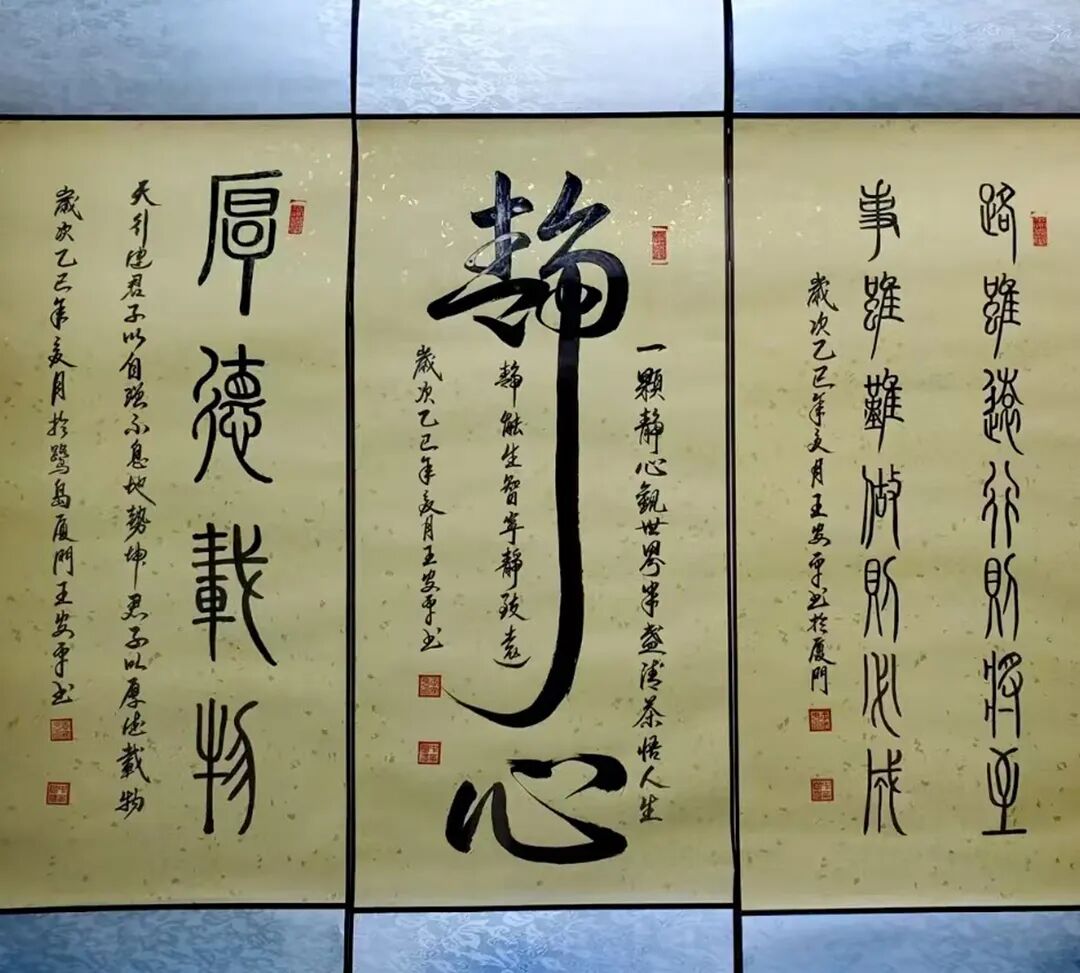 路雖遠行則將至
事雖難做則必成
歲次乙巳年亥月王安平书於厦門
一顆静心觀世界半盏清茶悟人生
静心
静能生智寧静致遠
歲次乙巳年亥月王安平书
厚德載物
天行健君子以自强不息地势坤君子以厚德載物
歲次乙巳年亥月於鹭岛厦門王安平书